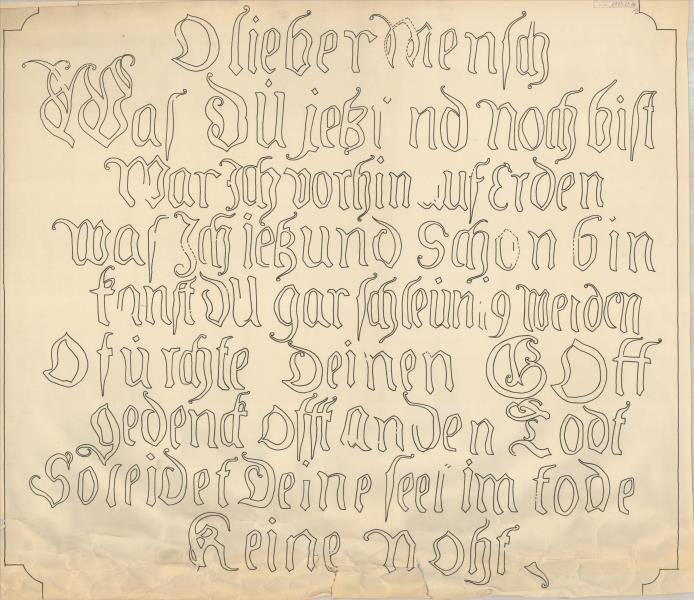 O lieber Mensch
Was DU jetz nd noch bist
War Jch vorhin uf Erden
was Jch ietzund Schon bin
kanst DU gar schleünig werden
O fürchte Deinen GOtt
gedenck offt an den Todt
So leidet Deine seel im tode
Keine noht,